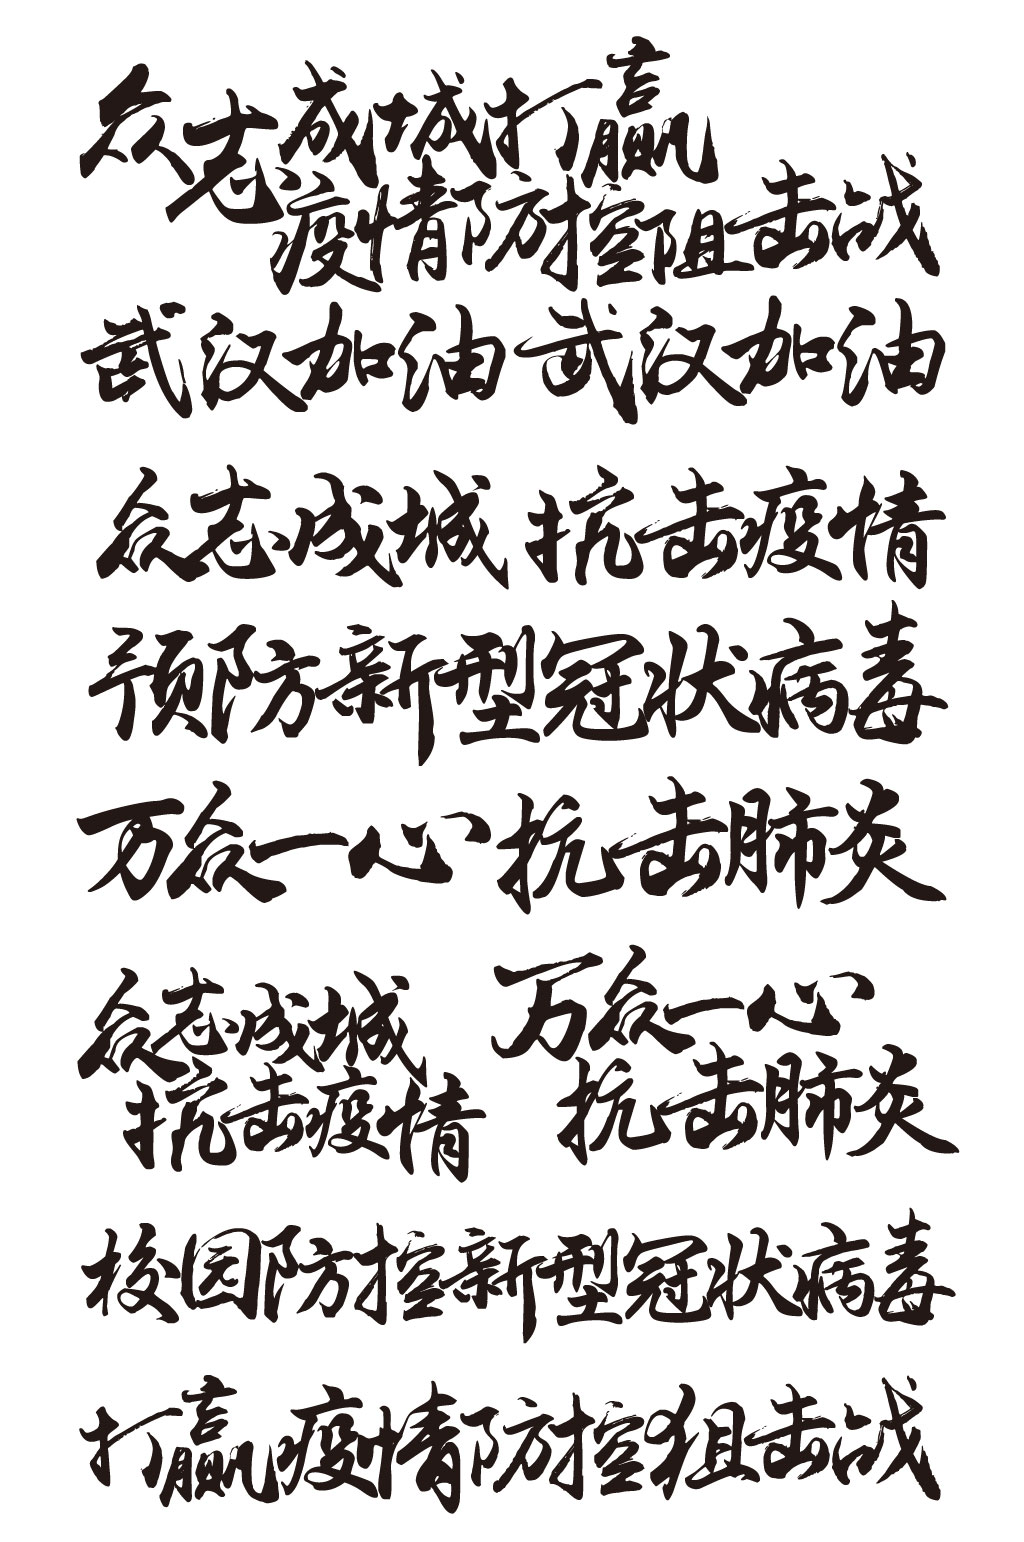 众志成城打赢
疫情防控阻击战
武汉加油 武汉加油
众志成城 抗击疫情
预防新型冠状病毒
万众一心 抗击肺炎
众志成城
抗击疫情
万众一心
抗击肺炎
校园防控新型冠状病毒
打赢疫情防控狙击战